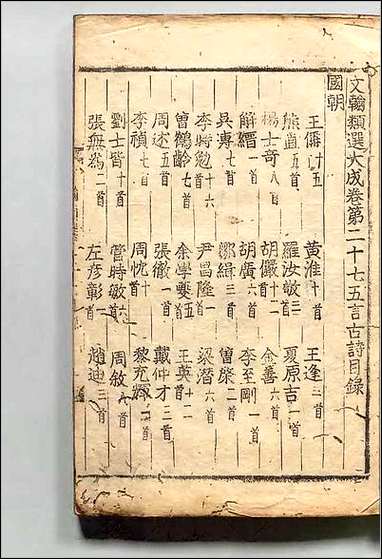 文翰類選大成卷第二十七五言古詩目錄
國朝
王偁十五 黃淮十首 王逢二首
熊直五首 羅汝敬三 夏原吉一首
楊士奇八首 胡儼十二 金善六首
解縉一首 胡廣六首 李至剛一首
吳溥七首 鄒緝三首 曾棨二首
李時勉十六 尹昌隆一 梁潛六首
曾鶴齡七首 余學夔五首 王英十二
周述五首 張徹一首 戴仲才二首
李禎七首 周忱十首 黎充輝二首
劉士皆十首 管時敏六首 周敘八首
張無為二首 左彥彰二首 趙迪三首